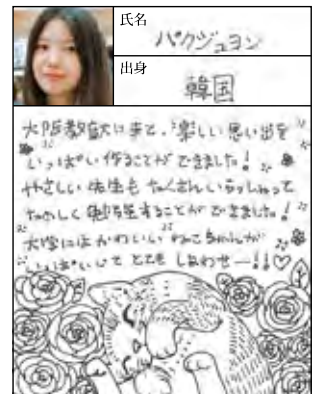 氏名
パクジュヨン
出身
韓国
大阪教大に来て、楽しい思い出を
いっぱい作ることができました!
やさしい先生もたくさんいらっしゃって
たのしく勉強することができました!
大学にはかわいいねこちゃんが
いっぱいいてとてもしあわせー!!♡